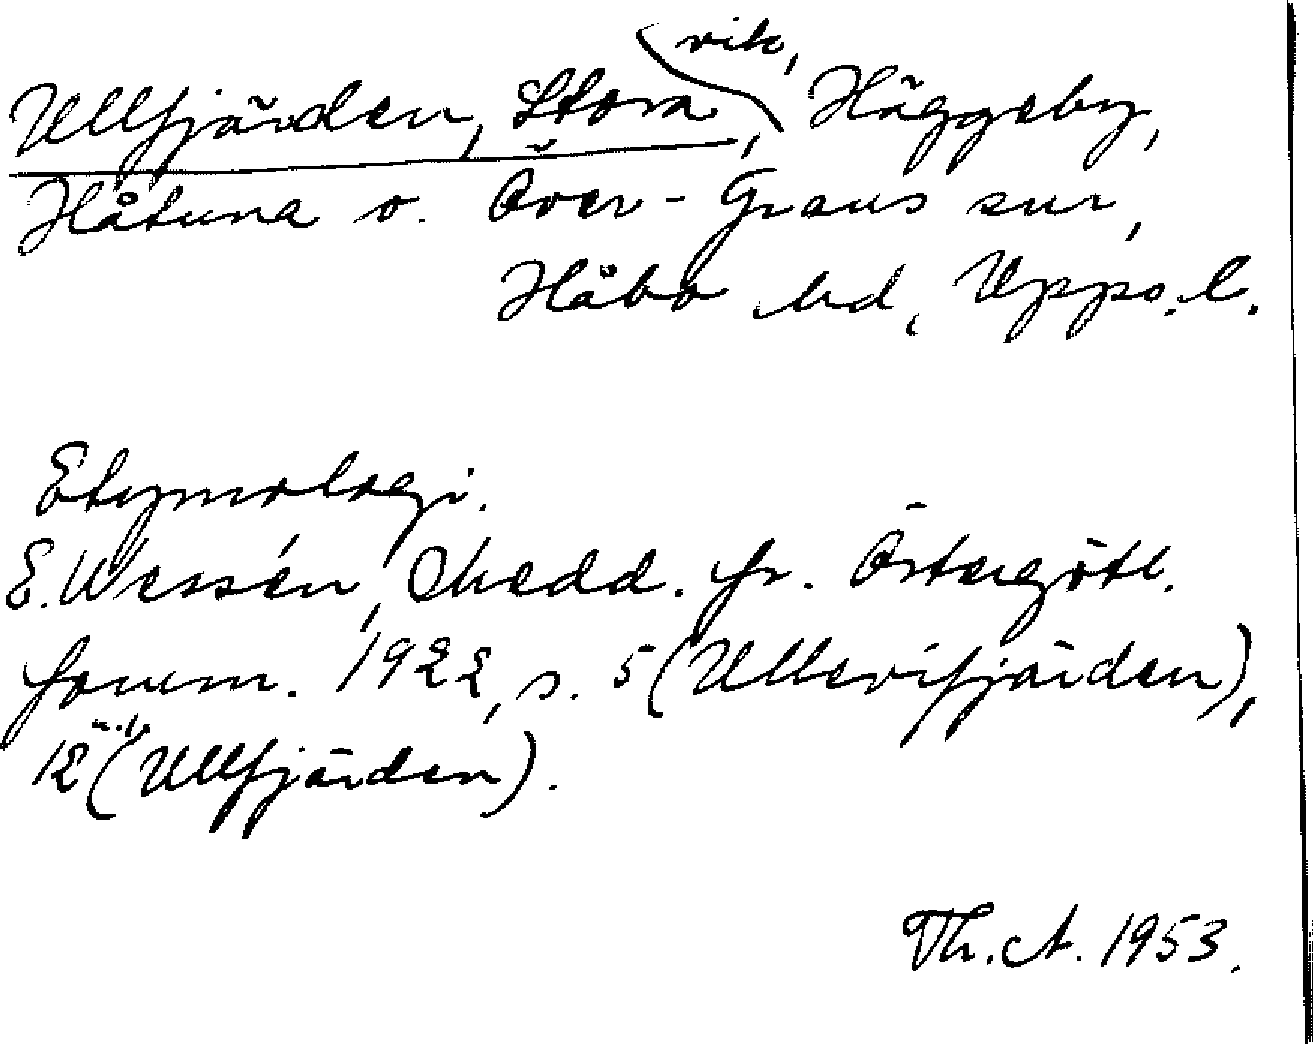 Ullfjärden, Stora, vik, Häggeby,
Håtuna o. Över-Grans snr,
Håbo hd, Upps. l.
Etymologi.
E. Wessén, Medd. fr. Östergötl.
fornm. 1922, s. 5 (Ullevifjärden),
12 n.1. (Ullfjärden).
Th. A. 1953.